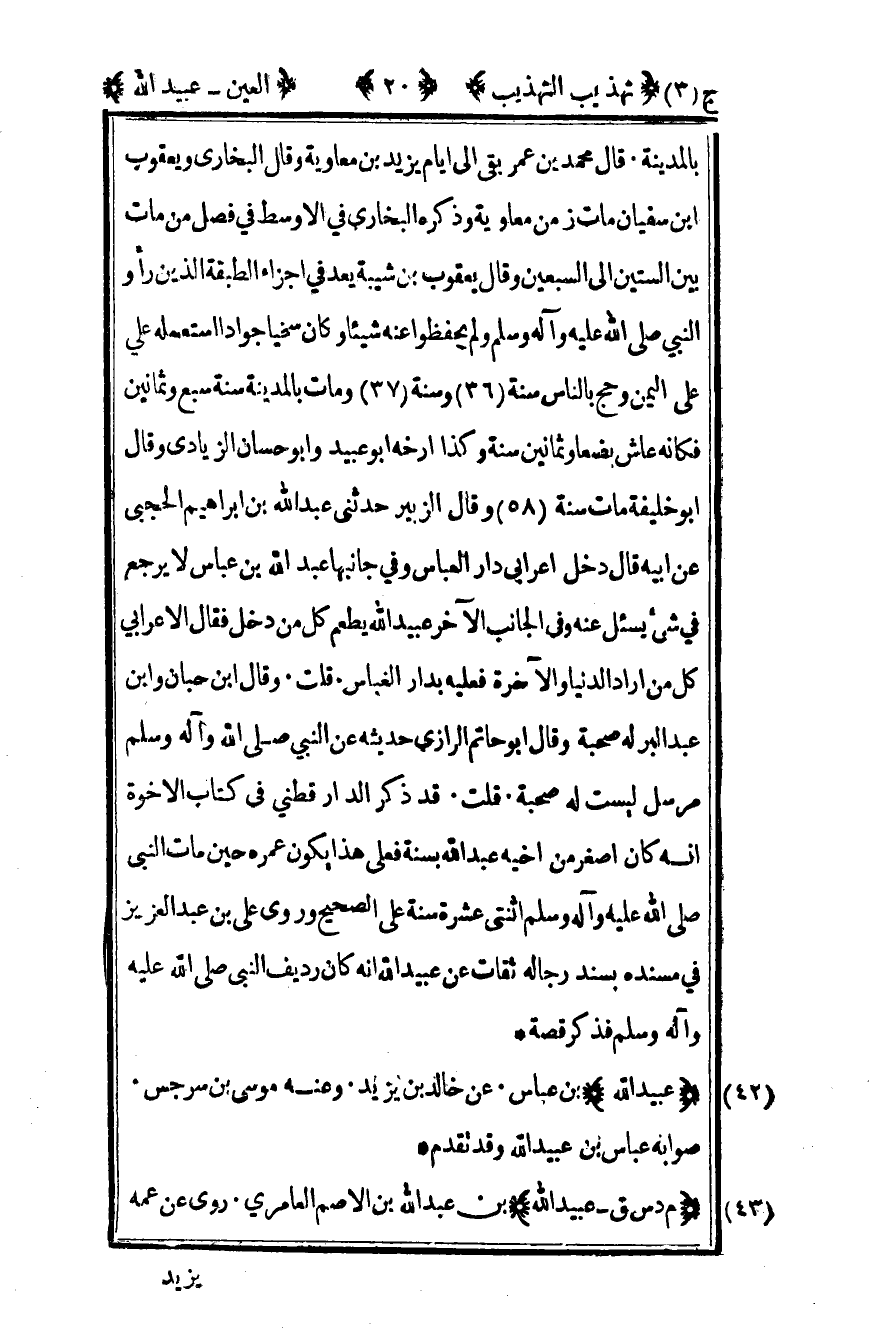 ج (٣) ﴿ تهذيب التهذيب ﴾ ﴿ ٢٠ ﴾ ﴿ العين ـ عبيد الله ﴾
بالمدينة · قال محمد بن عمر بقى الى ايام يزيد بن معاوية وقال البخارى ويعقوب
ابن سفيان مات زمن معاوية وذكره البخارى في الاوسط في فصل من مات
بين الستين الى السبعين وقال يعقوب بن شيبة يعد في اجزاء الطبقة الذين رأو
النبي صلى الله عليه وآله وسلم ولم يحفظوا عنه شيئا وكان سخيا جوادا استعمله علي
على اليمن وحج بالناس سنة (٣٦) وسنة (٣٧) ومات بالمدينة سنة سبع وثمانين
فكانه عاش بضعا وثمانين سنة وكذا ارخه ابو عبيد وابو حسان الزيادى وقال
ابو خليفة مات سنة (٥٨) وقال الزبير حدثنى عبدالله بن ابراهيم الحجبى
عن ابيه قال دخل اعرابى دار العباس وفي جانبها عبد الله بن عباس لا يرجع
في شئ يسئل عنه وفى الجانب الآخر عبيد الله يطعم كل من دخل فقال الاعرابي
كل من اراد الدنيا والآخرة فعليه بدار الغباس · قلت · وقال ابن حبان وابن
عبد البر له صحبة وقال ابو حاتم الرازي حديثه عن النبي صلى الله وآله وسلم
مرسل ليست له صحبة · قلت · قد ذكر الدار قطني فى كتاب الاخوة
انه كان اصغر من اخيه عبدالله بسنة فعلى هذا يكون عمره حين مات النبى
صلى الله عليه وآله وسلم اثنتى عشرة سنة على الصحيح وروى على بن عبد العزيز
في مسنده بسند رجاله ثقات عن عبيدالله انه كان رديف النبى صلى الله عليه
وآله وسلم فذكر قصة *
(٤٢) ﴿ عبيدالله ﴾ بن عباس · عن خالد بن يزيد · وعنه موسى بن سرجس ·
صوابه عباس بن عبيدالله وقد تقدم *
(٤٣) ﴿ م د س ق ـ عبيدالله ﴾ بن عبدالله بن الاصم العامري · روى عن عمه
يزيد